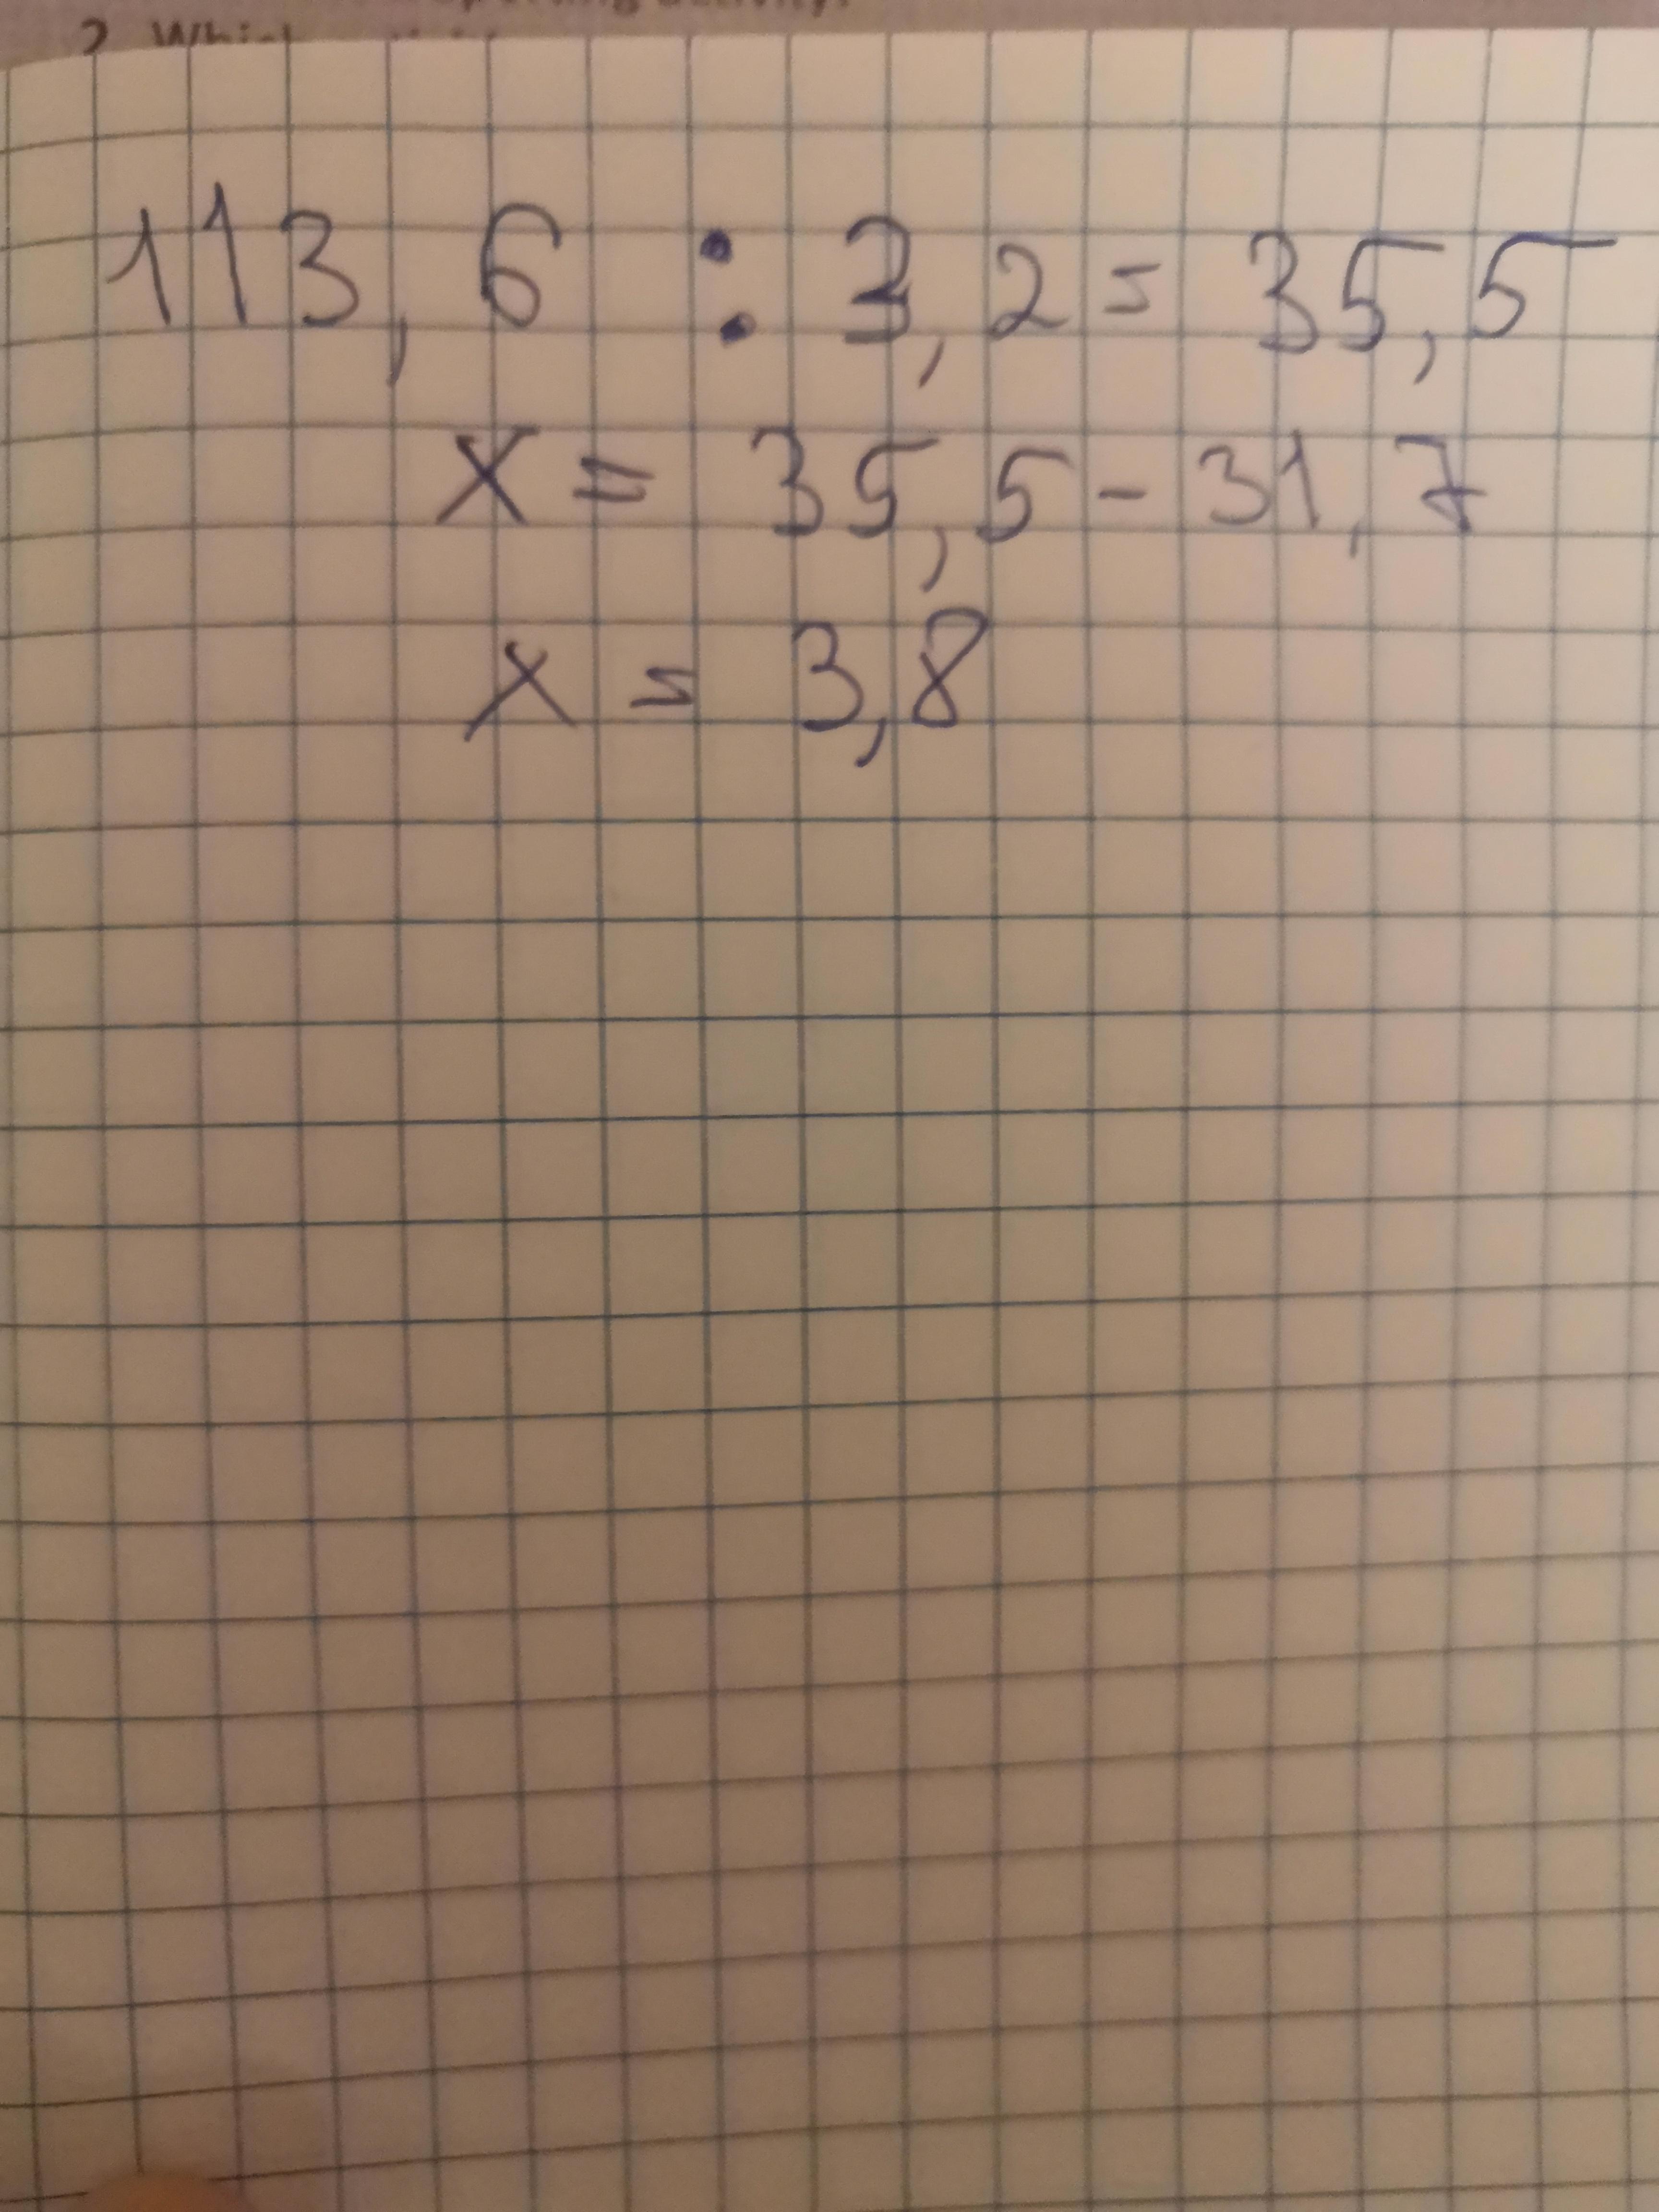 2. Which
113,6 : 3,2 = 35,5
x = 35,5 - 31,7
x = 3,8